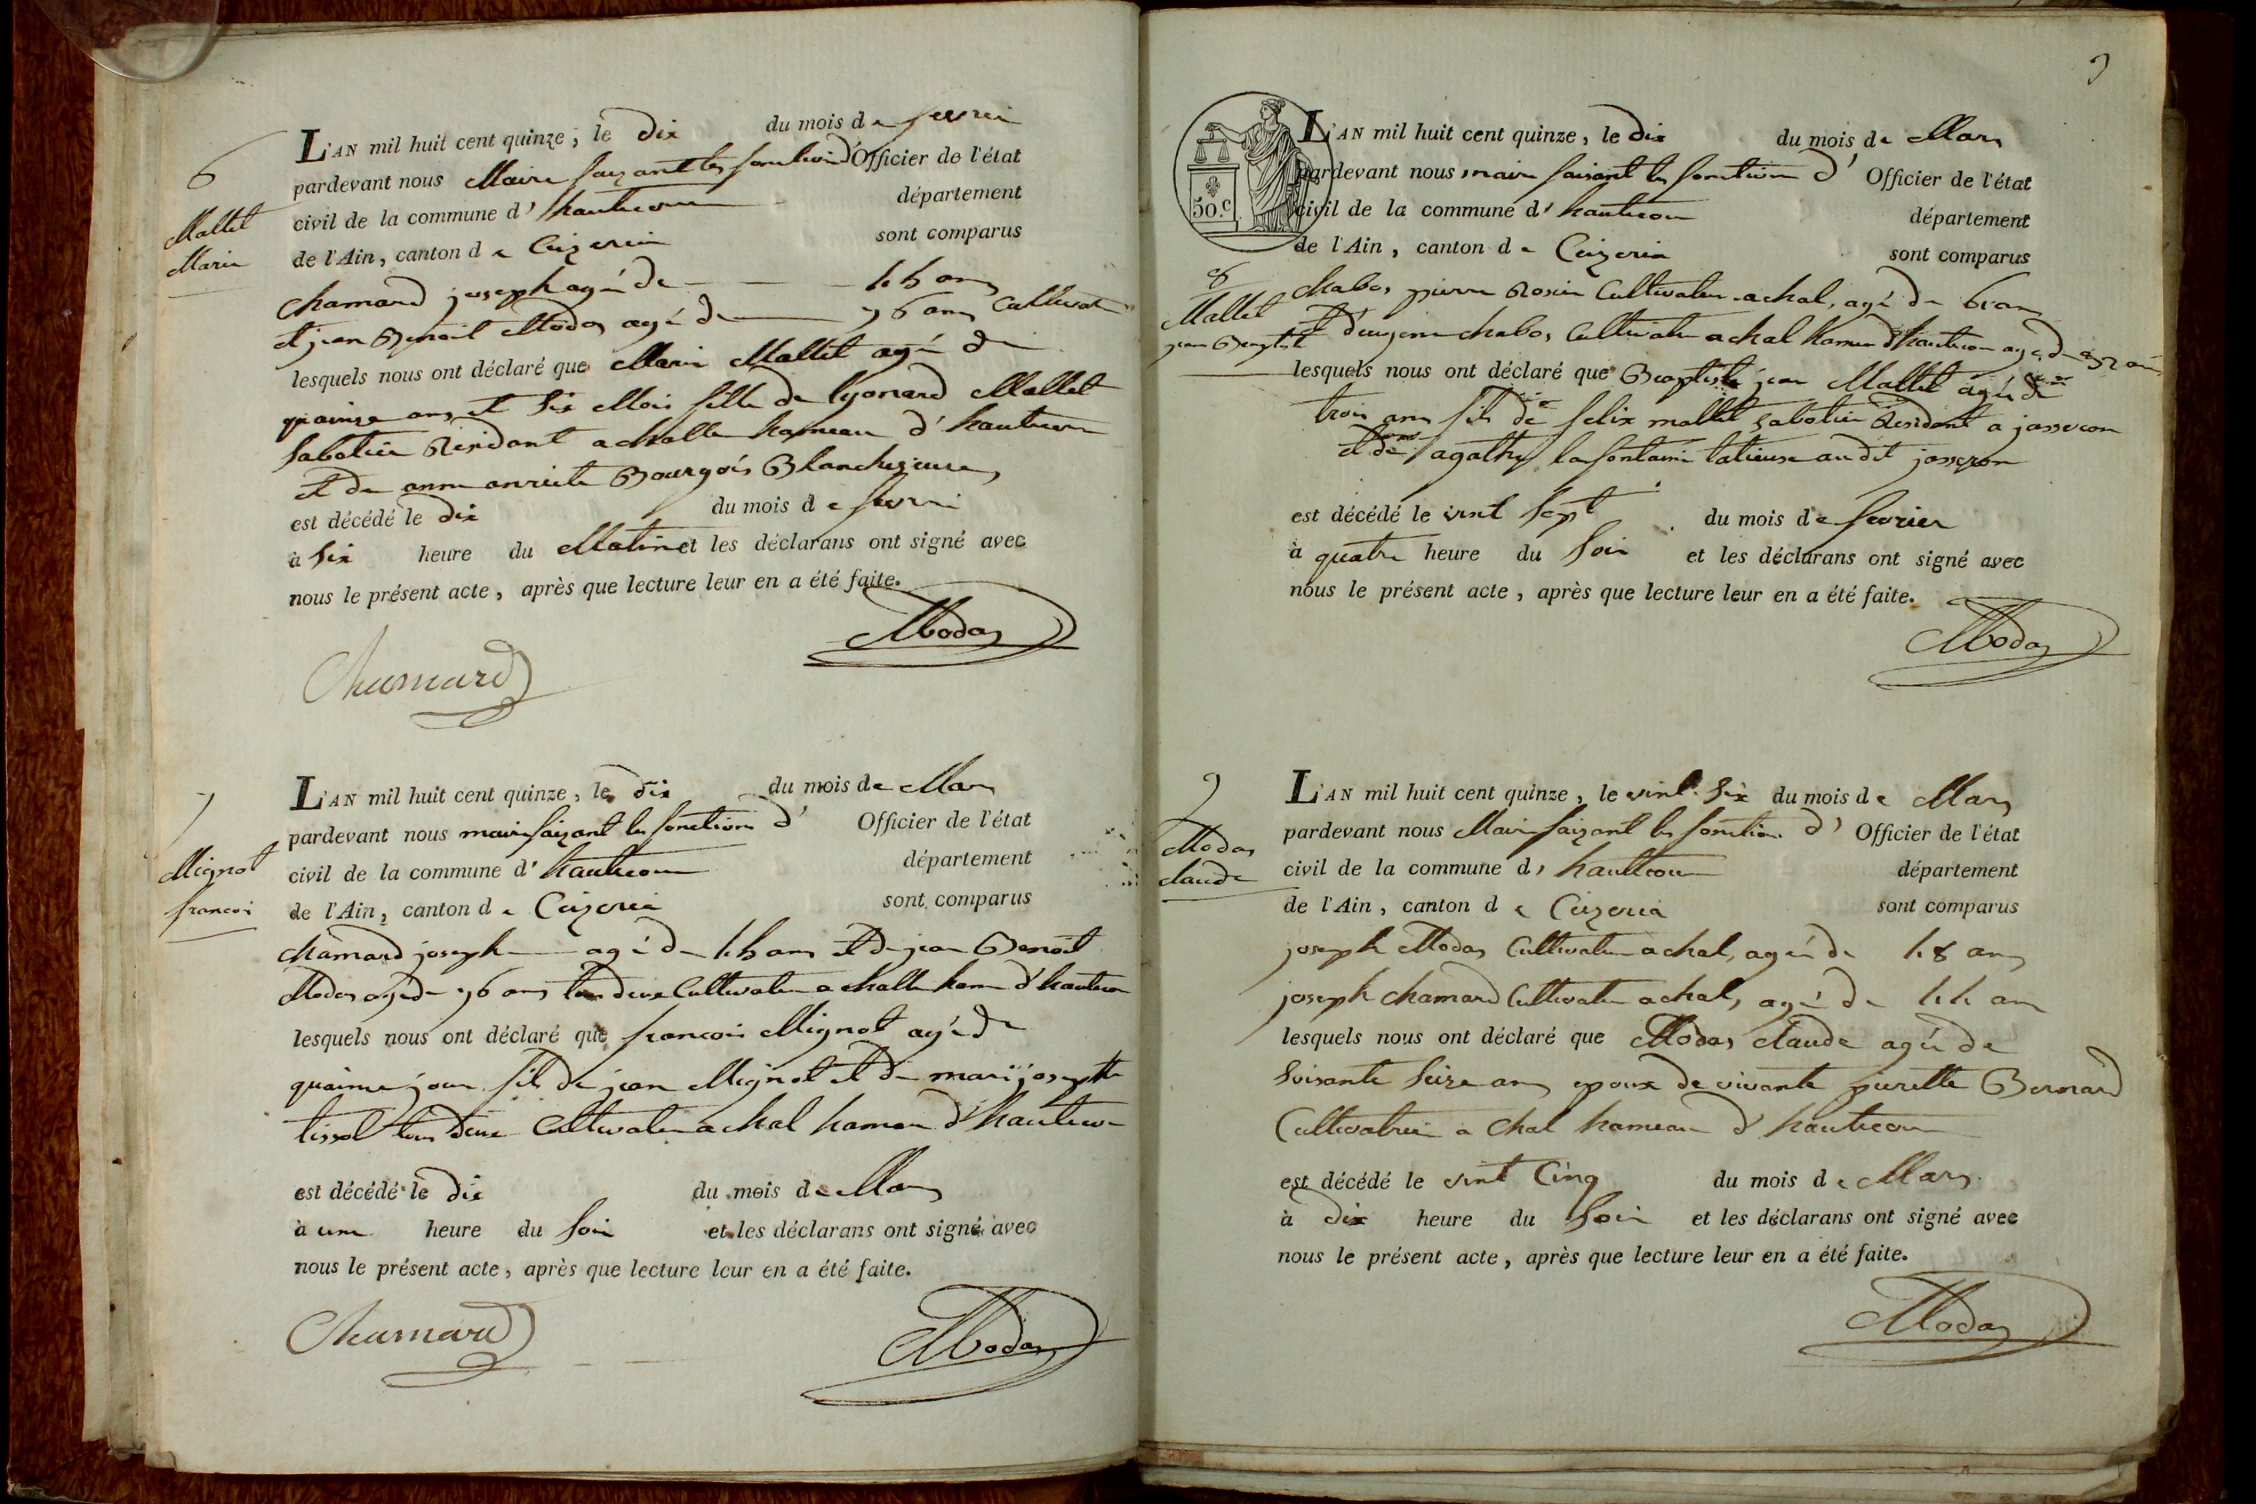 6
Mallet
Marie
L'AN mil huit cent quinze, le dix du mois de fevrie
pardevant nous Maire faizant les fonction d'Officier de l'état
civil de la commune d'hautecour département
de l'Ain, canton de Ceizeria sont comparus
Chamard joseph agé de 45 ans
et jean Benoit Modas agé de 36 ans Cultivat
lesquels nous ont déclaré que Marie Mallet agé de
quainze ans et Six Mois fille de lyonard Mallet
Sabotier Résidant a challe hameau d'hautecour
et de anne anriete Bourgois Blanchiseure
est décédé le dix du mois de fevrie
à Six heure du Matin et les déclarans ont signé avec
nous le présent acte, après que lecture leur en a été faite.
Chamard Modas
7
Mignot
francoi
L'AN mil huit cent quinze, le dix du mois de Mars
pardevant nous maire faizant les fonction d' Officier de l'état
civil de la commune d'hautecour département
de l'Ain, canton de Ceizeria sont comparus
chamard joseph agé de 45 ans et de jean Benoit
Modas agé de 36 ans tous deux Cultivateur a challe hame d'hautecour
lesquels nous ont déclaré que francois Mignot agé de
quainze jour fils de jean Mignot et de marie josephte
tissot tous deux Cultivateur a chal hameau d'hautecour
est décédé le dix du mois de Mars
à une heure du Soir et les déclarans ont signé avec
nous le présent acte, après que lecture leur en a été faite.
Chamard Modas
9
50.c
8
Mallet
jean Baptist
L'AN mil huit cent quinze, le dix du mois de Mars
pardevant nous maire faisant les fonction d' Officier de l'état
civil de la commune d'hautecour département
de l'Ain, canton de Ceizeria sont comparus
Chabos pierre Rosier Cultivateur a chal, agé de 61 ans
et d'eugene chabos Cultivateur a chal hameau d'hautecour agé de 32 ans
lesquels nous ont déclaré que Baptiste jean Mallet agé de
trois ans fils de felix mallet Sabotier Résidant a josseron
et de agathe lafontaine tatieuse au dit josseron
est décédé le vint Sept du mois de fevrier
à quatre heure du Soir et les déclarans ont signé avec
nous le présent acte, après que lecture leur en a été faite.
Modas
9
Modas
claude
L'AN mil huit cent quinze, le vint Six du mois de Mars
pardevant nous Maire faizant les fonction d' Officier de l'état
civil de la commune d'hautecour département
de l'Ain, canton de Ceizeria sont comparus
joseph Modas Cultivateur a chal, agé de 48 ans
joseph chamard Cultivateur a chal, agé de 44 ans
lesquels nous ont déclaré que Modas claude agé de
Soisante Seize ans epoux de vivante pierette Bernard
Cultivatrice a Chal hameau d'hautecour
est décédé le vint Cinq du mois de Mars
à dix heure du Soir et les déclarans ont signé avec
nous le présent acte, après que lecture leur en a été faite.
Modas